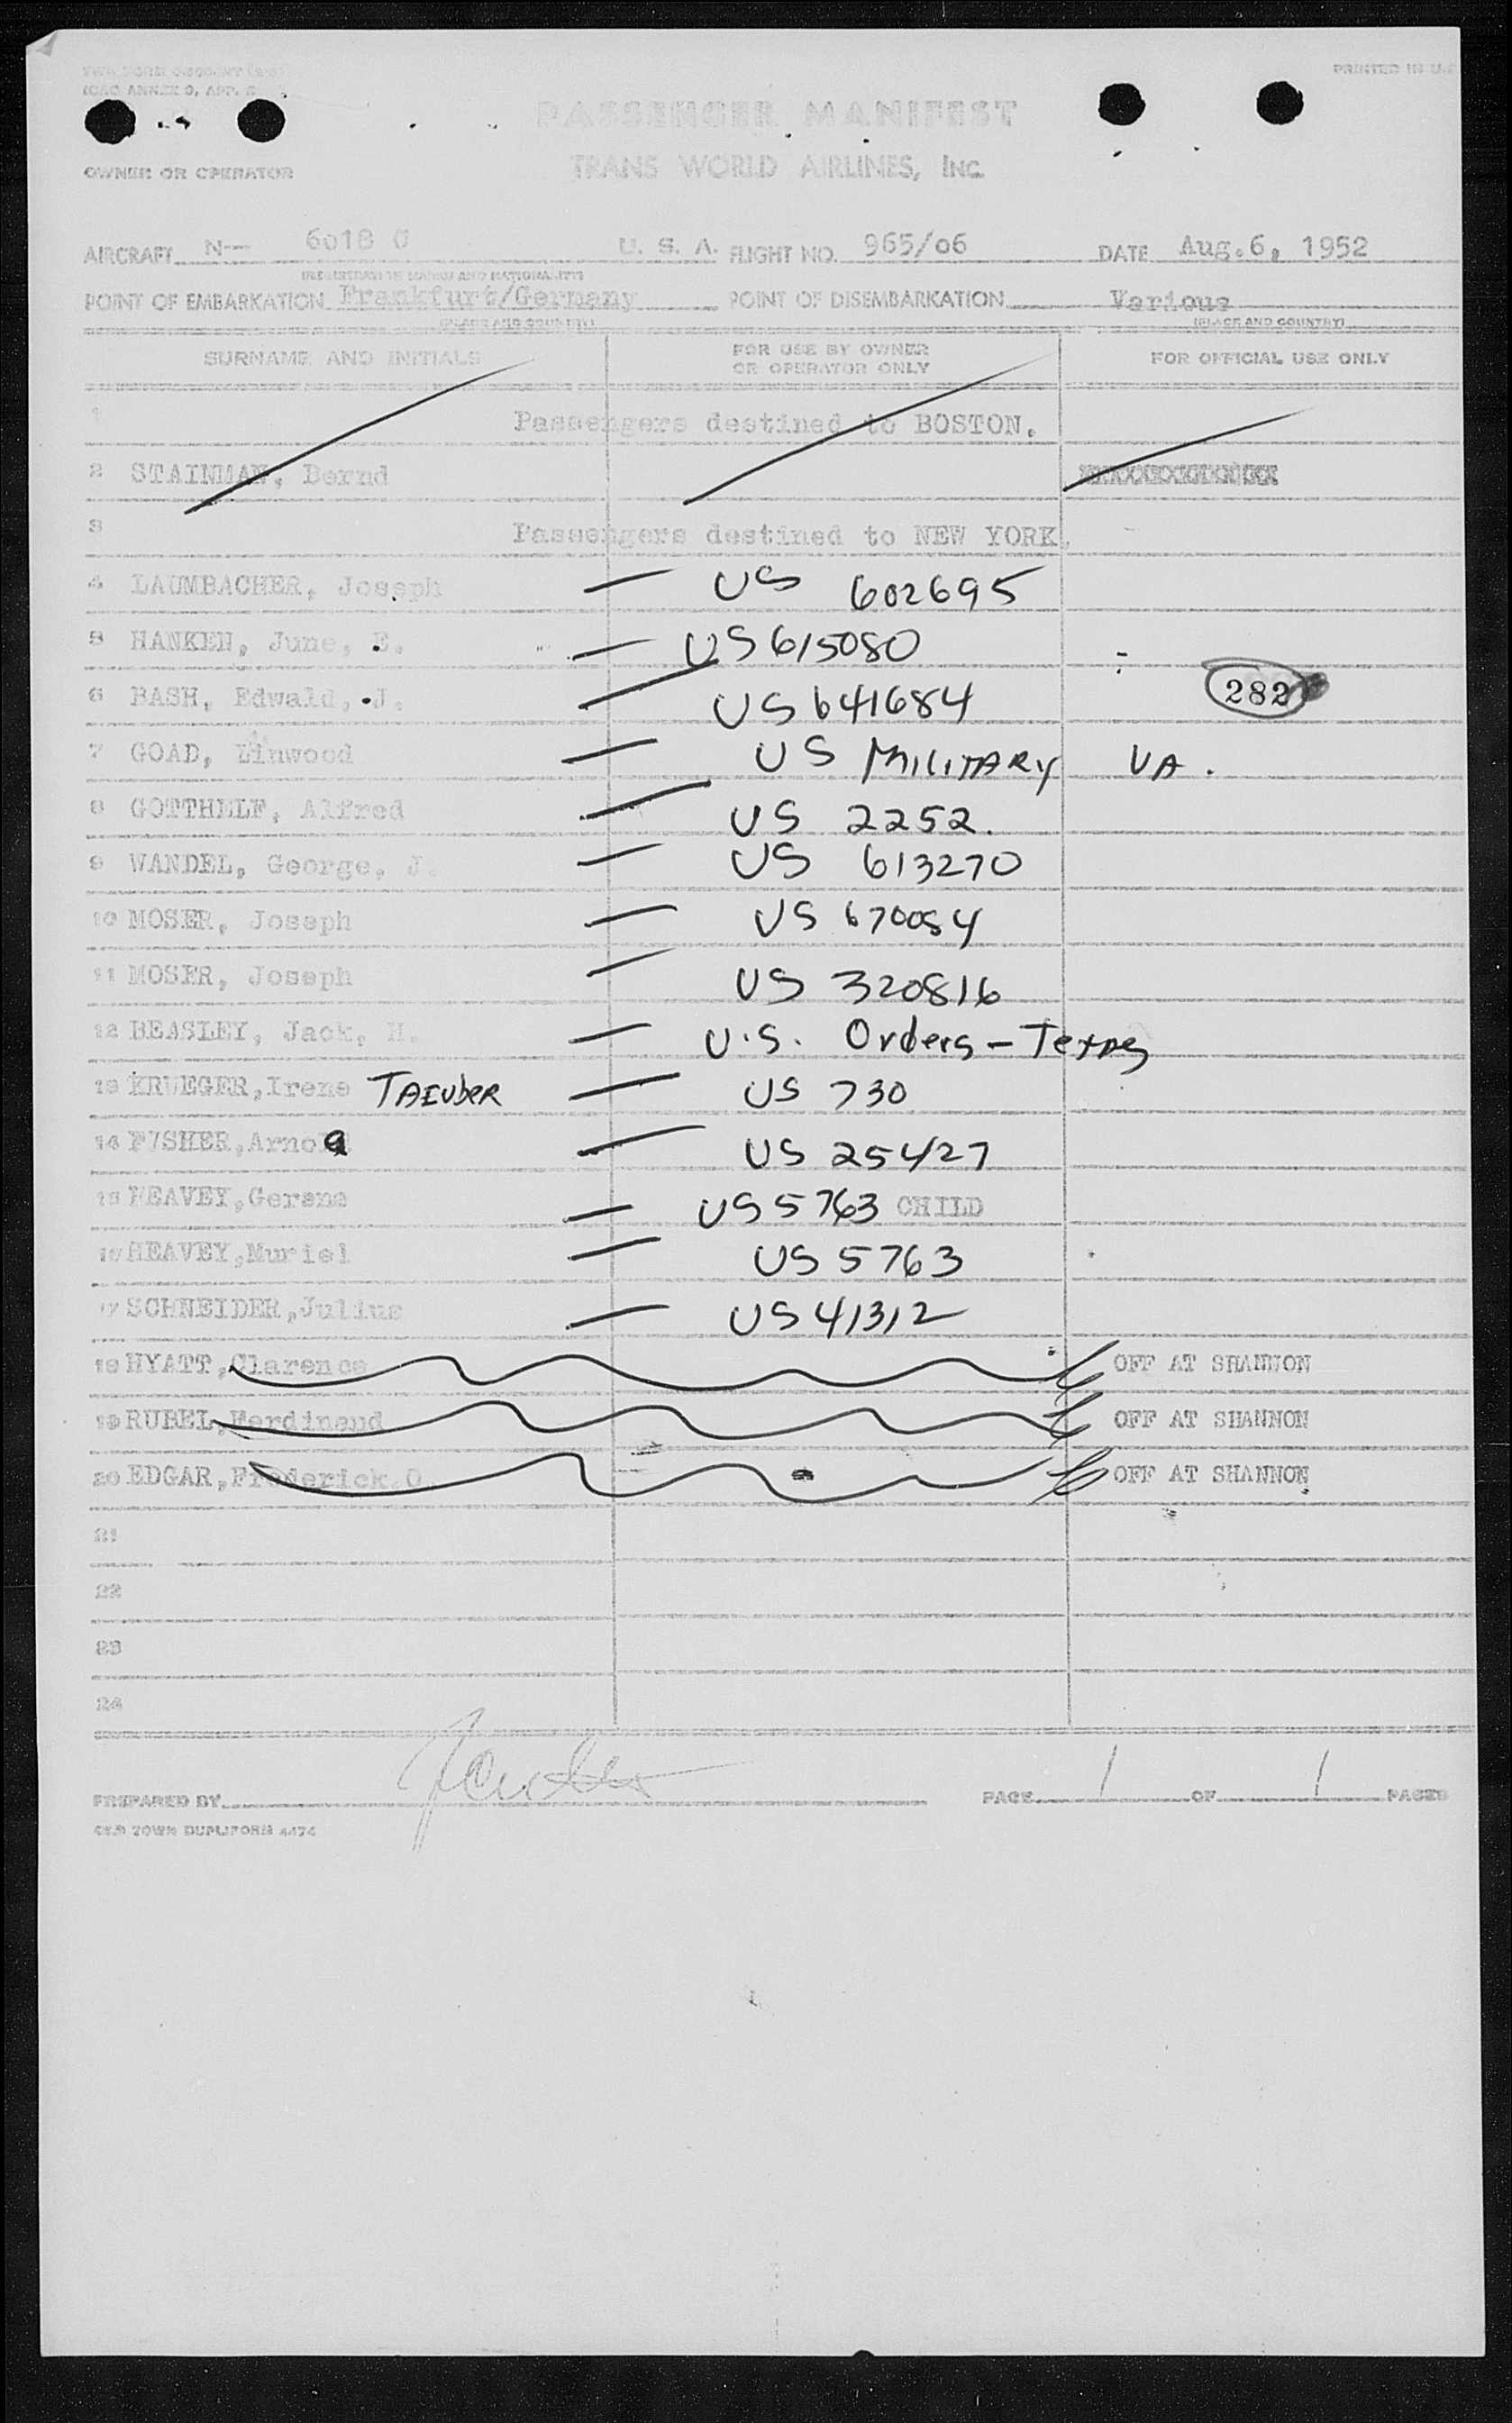 ICAO ANNEX 9, APP.
PRINTED IN U.S.
PASSENGER MANIFEST
OWNER OR OPERATOR
TRANS WORLD AIRLINES, INC.
AIRCRAFT N-- 6018 C U. S. A. FLIGHT NO. 965/06 DATE Aug.6, 1952
(REGISTRATION MARKS AND NATIONALITY)
POINT OF EMBARKATION Frankfurt/Germany POINT OF DISEMBARKATION Various
(PLACE AND COUNTRY) (PLACE AND COUNTRY)
SURNAME AND INITIALS FOR USE BY OWNER OR OPERATOR ONLY FOR OFFICIAL USE ONLY
1 Passengers destined to BOSTON.
2 STAINMAN, Bernd
3 Passengers destined to NEW YORK.
4 LAUMBACHER, Joseph — US 602695
5 HANKEN, June, E. — US 615080
6 BASH, Edwald, J. — US 641684 282
7 GOAD, Linwood — US MILITARY VA.
8 GOTTHELF, Alfred — US 2252.
9 WANDEL, George, J. — US 613270
10 MOSER, Joseph — US 670084
11 MOSER, Joseph — US 320816
12 BEASLEY, Jack, H. — U.S. Orders - Texas
13 KRUEGER, Irene TAEUBER — US 730
14 FISHER, — US 25427
15 HEAVEY, Gerane — US 5763 CHILD
16 HEAVEY, Muriel — US 5763
17 SCHNEIDER, Julius — US 41312
18 HYATT, Clarence OFF AT SHANNON
19 RUBEL, Ferdinand OFF AT SHANNON
20 EDGAR, Frederick O. OFF AT SHANNON
21
22
23
24
PREPARED BY PAGE 1 OF 1 PAGES
OLD TOWN DUPLIFORM 4474